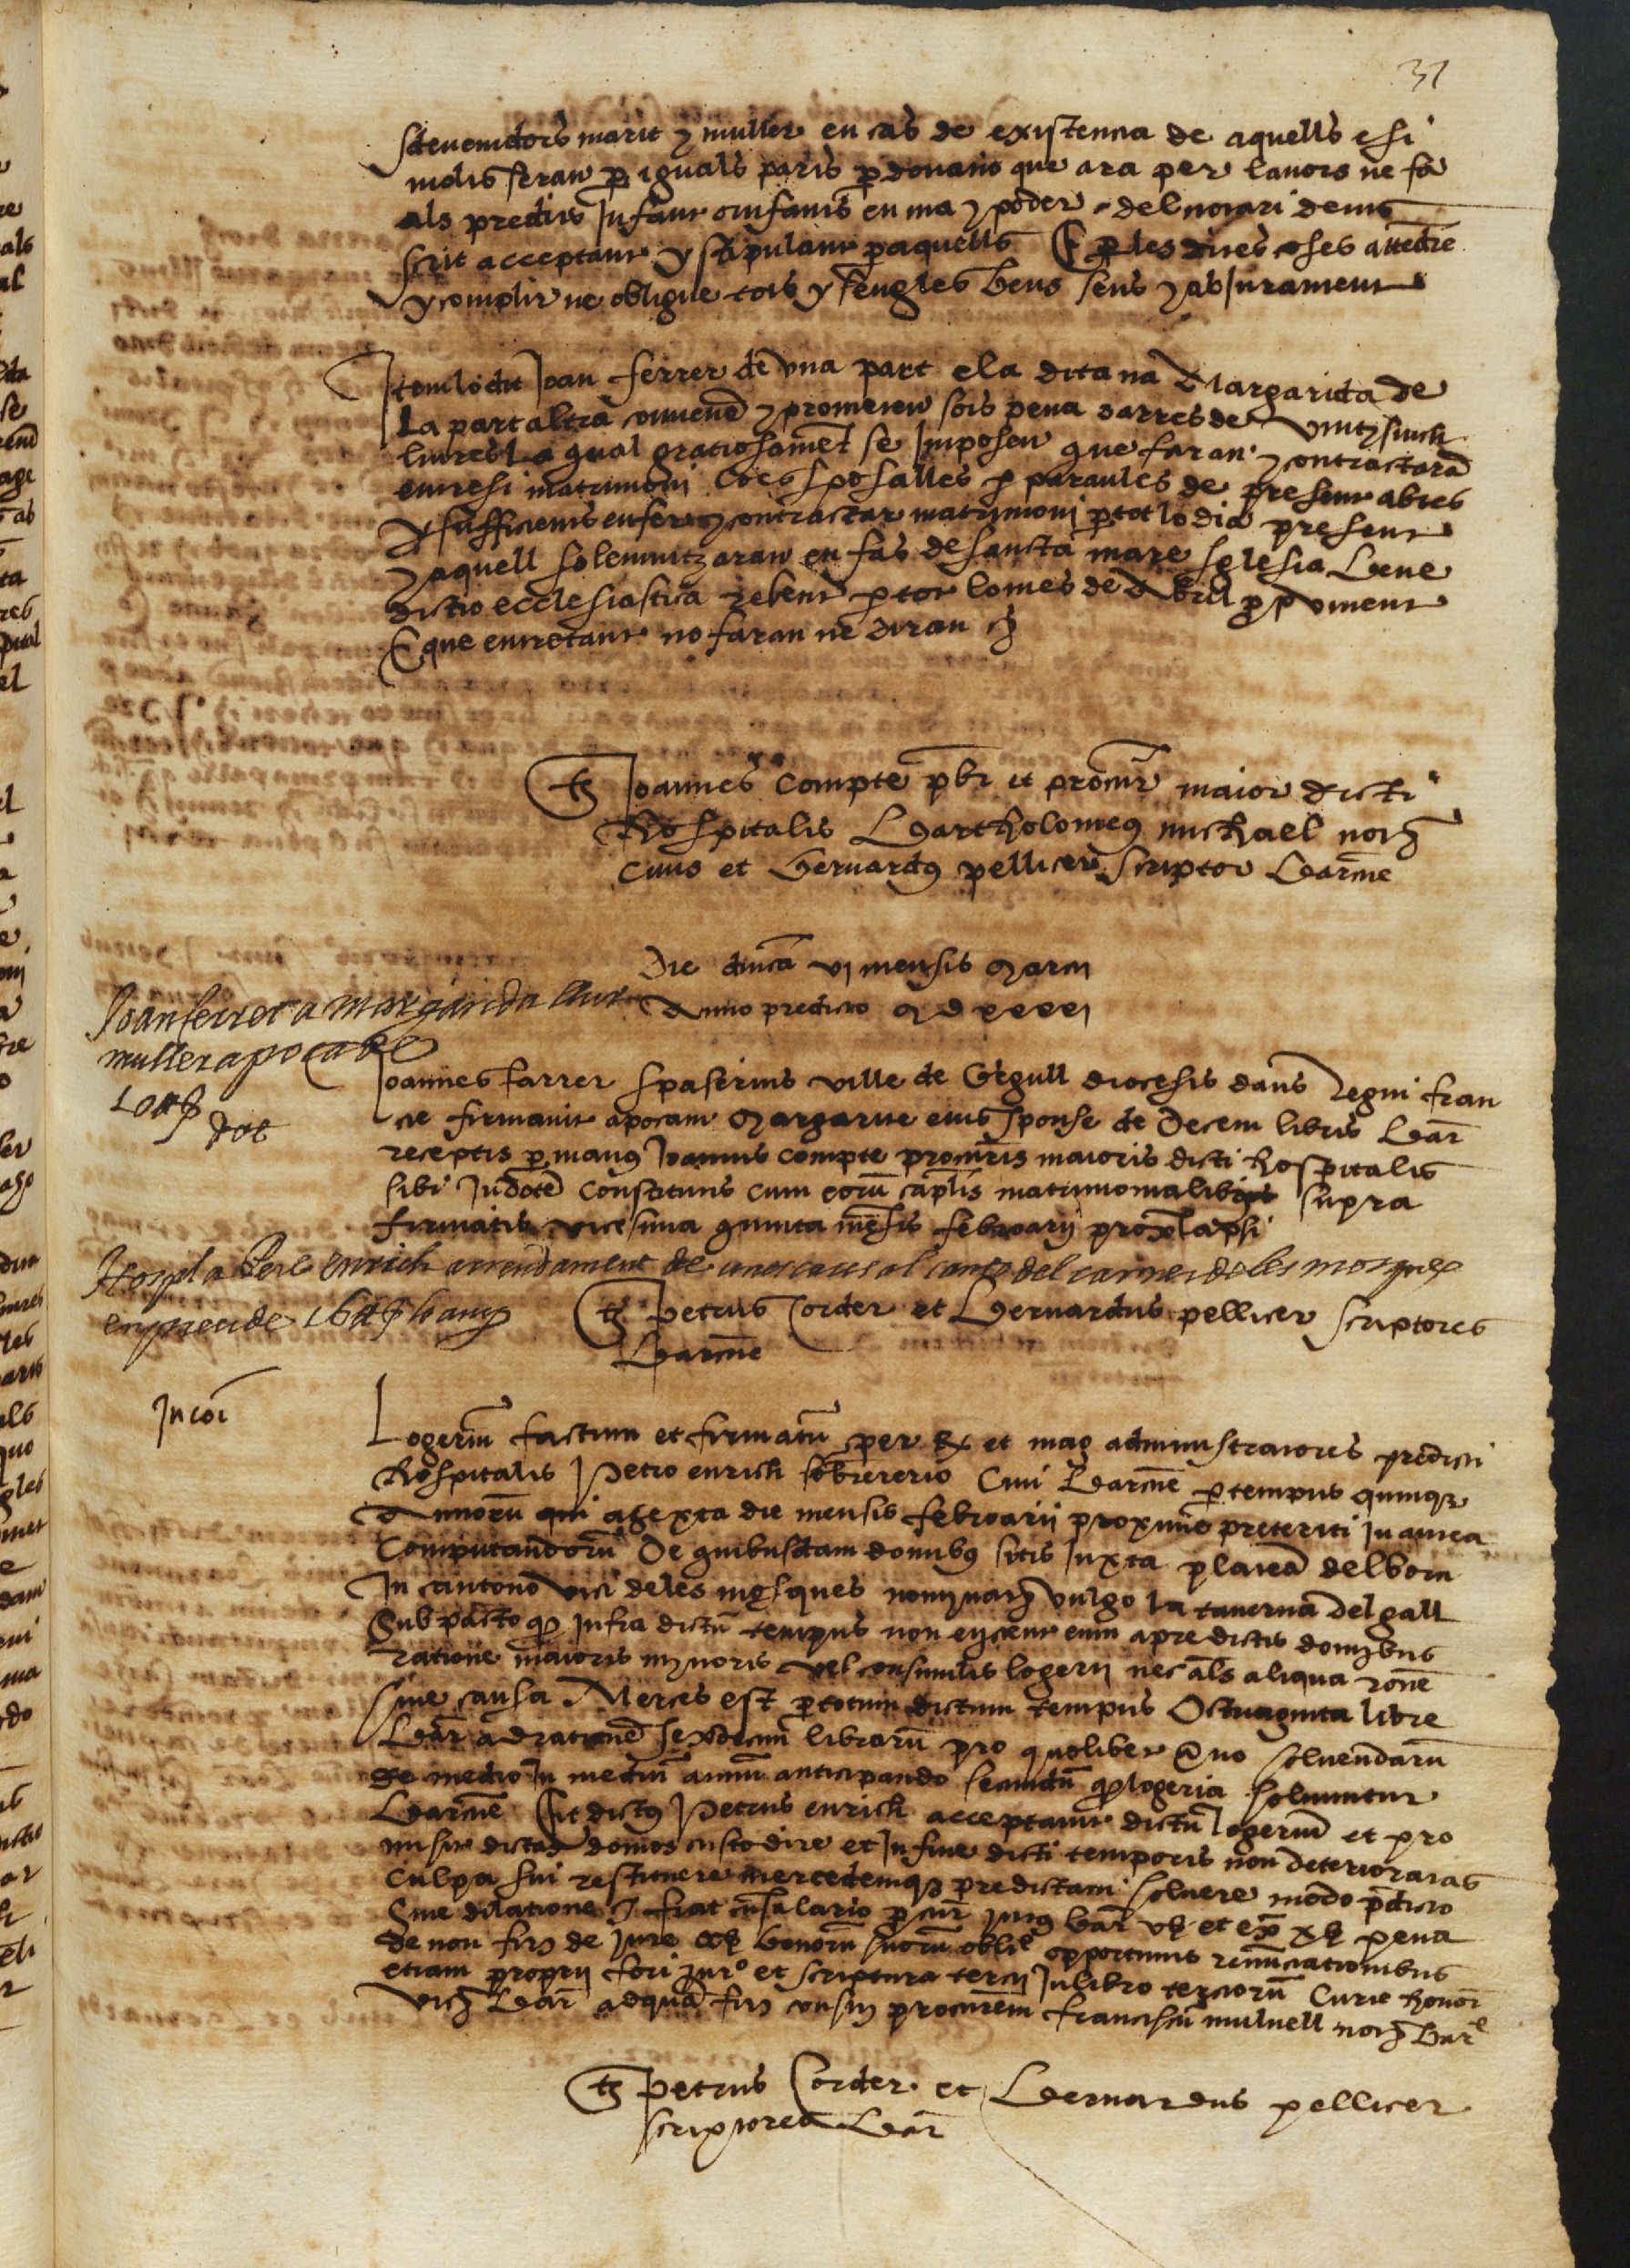 31
sdevenidors marit y muller en cas de existentia de aquells e si
molts seran p iguals parts p donatio que ara per lavors ne fa
als predits Infant o infants en ma y poder del notari devis
scrit acceptant y stipulant p aquells E p les dites coses attedre
y complir ne obligue tots y sengles bens seus y ab Jurament
Item lo dit Joan ferrer de una part e la dita na Margarida de
la part altra convene y prometen sots pena darres de vint y sinch
liures La qual gratiosamet se Imposen que faran y contractara
entre si matrimoni Coes sposalles p paraules de present abtes
y sufficients en fer y contractar matrimoni p tot lo dia present
y aquell solemnitzaran en fas de sancta mare sglesia Bene
dictio ecclesiastica rebent p tot lo mes de Abril p p vinent
E que entretant no faran ne diran
ts Joannes Compte pbr et procur maior dicti
Hospitalis Bartholomeus michael not
civis et Bernardus pellicer scriptor Barcne
Die dnica vj mensis Marcij
Anno predicto M D xxxxj
Joan ferrer a margarida sua
muller apoca de
10 ll
dot
Joannes farrer spaserius ville de Gegull diocesis daus Regni fran
cie firmavit apocam Margarite eius sponse de Decem libris Bar
receptis p manus Joannis compte procuris maioris dicti Hospitalis
sibi In dote Constitutis cum eoru caplis matrimonialibus supra
firmatis vicesima quinta mesis februarij prox lapsi
Hospl a Pere enrich arrendament de unes cases al canto del carrer de les mosques
en preu de 16 ll lo any
ts Petrus Corder et Bernardus pellicer scriptores
Barcne
In coi
Logeriu factum et firmatu per R et mag administratores predicti
Hospitalis Petro enrich sobrererio Civi Barcne p tempus quinque
Annoru qui a sexta die mensis februarii proxime preteriti In antea
Computandoru De quibusdam domibus sitis Juxta platea del born
In cantono vici de les mosques nominat vulgo la taverna del gall
Sub pacto q Infra dictu tempus non eijcient eum a predictis domibus
ratione maioris minoris vel consimilis logerij nec als aliqua rone
sive causa Merces est p totum dictum tempus Octuaginta libre
Bar ad ratione sexdecim libraru pro quolibet Ano solvendaru
de medio In mediu annu anticipando secundu q logeria solvuntur
Barcne Et dictus Petrus enrich acceptavit dictu logeriu et pro
misit dictas domos custodire et In fine dicti temporis non deterioratas
culpa sui restituere mercedemq predictam solvere modo pdicto
Sine dilatione fiat cu salario pcur intus bar v s et ex x s pena
de non fir de jure bonoru suoru obli opportunis renuciationibus
etiam proprij fori jur et scriptura tercij In libro tercioru Curie honor
vic Bar ad qua fir consti procurem franciscu mulnell not bar
ts Petrus Corder et Bernardus pellicer
scriptores Bar